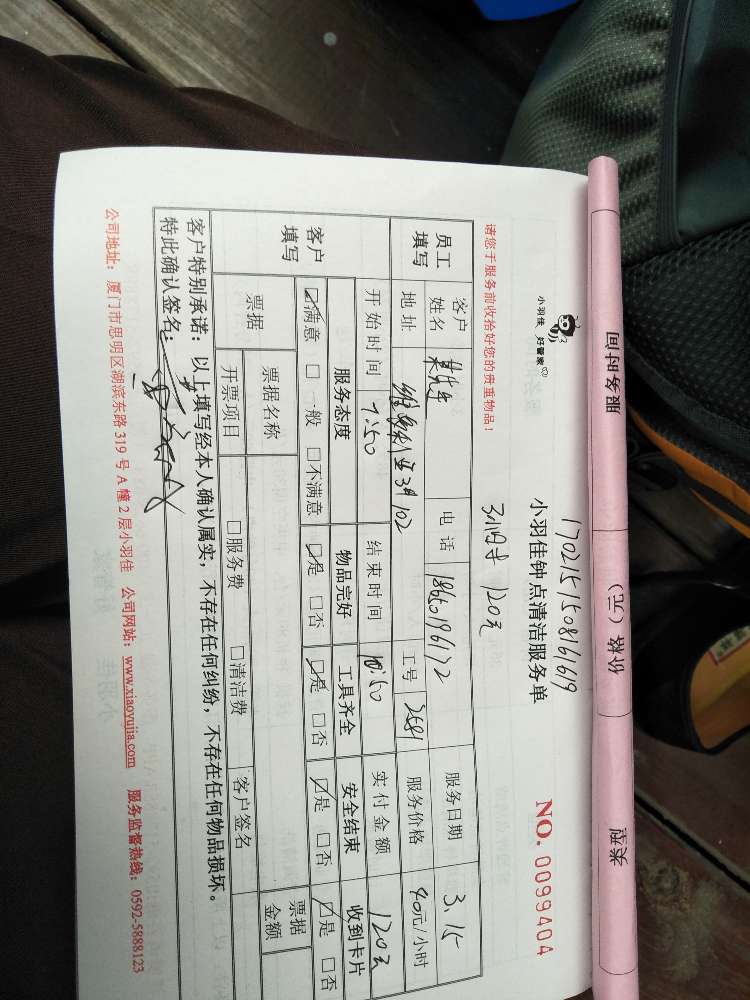 服务时间 价格（元） 类型
17021515081619
小羽佳 好管家
小羽佳钟点清洁服务单 NO. 0099404
3小时 120元
请您于服务前收拾好您的贵重物品！
员工填写 客户姓名 电话 服务日期 3.15
地址 3#102 工号 2581 服务价格 40元/小时
开始时间 7:50 结束时间 10:50 实付金额 120元
客户填写 服务态度 物品完好 工具齐全 安全结束 收到卡片
☑满意 □一般 □不满意 ☑是 □否 ☑是 □否 ☑是 □否 ☑是 □否
票据 票据名称 □服务费 □清洁费 客户签名 票据金额
开票项目
客户特别承诺：以上填写经本人确认属实，不存在任何纠纷，不存在任何物品损坏。
特此确认签名：
公司地址：厦门市思明区湖滨东路 319 号 A 幢 2 层小羽佳 公司网站：www.xiaoyujia.com 服务监督热线：0592-5888123